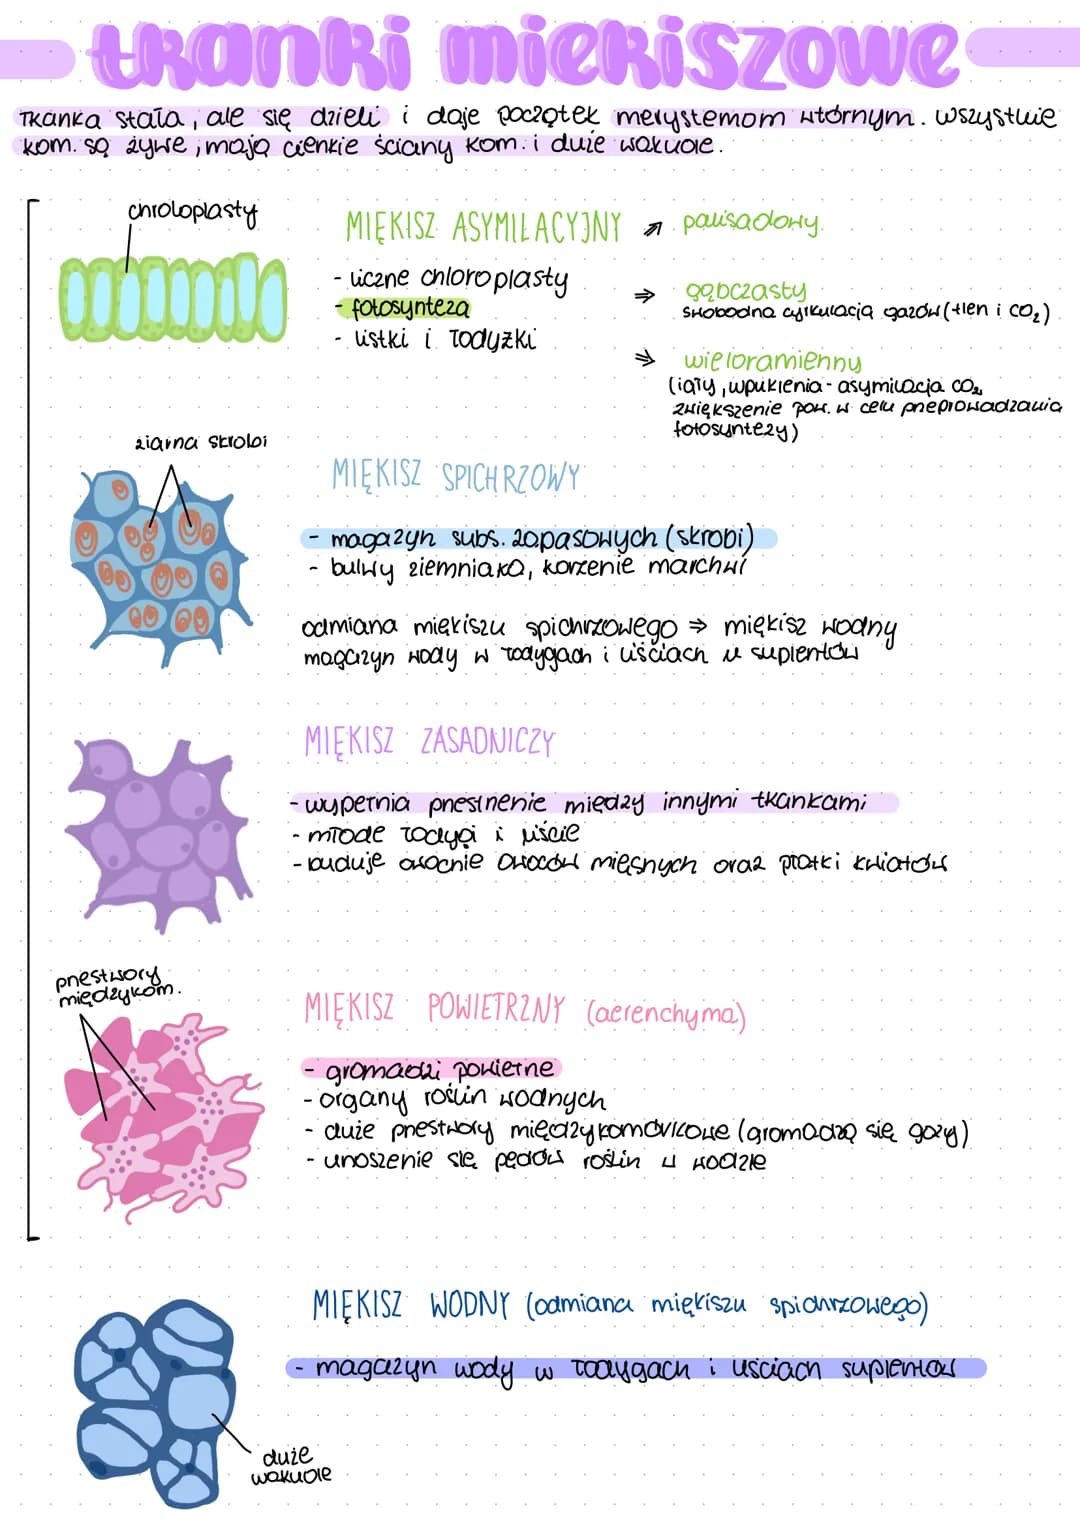 tkanki miękiszowe
Tkanka stała, ale się dzieli i daje początek merystemom wtórnym. Wszystkie
kom. są żywe, mają cienkie ściany kom. i duże wakuole.
chroloplasty
MIĘKISZ ASYMILACYJNY ⇗ palisadowy
- liczne chloroplasty
- fotosynteza
- listki i łodyżki
⇒ gąbczasty
swobodna cyrkulacja gazów (tlen i CO₂)
⇒ wieloramienny
(igły, wpuklenia - asymilacja CO₂
zwiększenie pow. w celu przeprowadzania
fotosyntezy)
ziarna skrobi
MIĘKISZ SPICHRZOWY
- magazyn subs. zapasowych (skrobi)
- bulwy ziemniaka, korzenie marchwi
odmiana miękiszu spichrzowego ⇒ miękisz wodny
magazyn wody w łodygach i liściach u suplentów
MIĘKISZ ZASADNICZY
- wypełnia przestrzenie między innymi tkankami
- młode łodygi i liście
- buduje owocnie owoców mięsnych oraz płatki kwiatów
przestwory
międzykom.
MIĘKISZ POWIETRZNY (aerenchyma)
- gromadzi powietrze
- organy roślin wodnych
- duże przestwory międzykomórkowe (gromadzą się gazy)
- unoszenie się pędów roślin w wodzie
MIĘKISZ WODNY (odmiana miękiszu spichrzowego)
- magazyn wody w łodygach i liściach suplentów
duże
wakuole